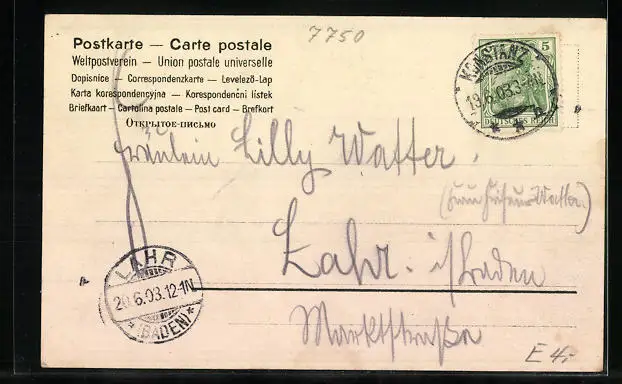 7750
Postkarte — Carte postale
Weltpostverein — Union postale universelle
Dopisnice — Correspondenzkarte — Levelező-Lap
Karta korespondencyjna — Korespondenční lístek
Briefkaart — Cartolina postale — Post card — Brefkort
Открытое письмо
5
DEUTSCHES REICH
KONSTANZ
Fräulein Lilly Watter.
Lahr. i/Baden
Marktstraße
LAHR
20.6.03.12-1N.
(BADEN)
E 4,-